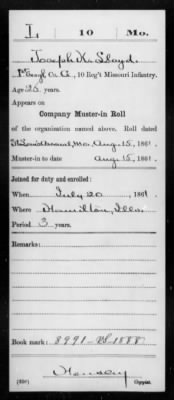 L | 10 | Mo.
Joseph K. Lloyd
Co. G, 10 Reg't Missouri Infantry.
Age 25 years.
Appears on
Company Muster-in Roll
of the organization named above. Roll dated
St Louis Arsenal, Mo. Aug. 15, 1861.
Muster-in to date Aug. 15, 1861.
Joined for duty and enrolled:
When July 20, 1861
Where Hamilton, Ills.
Period 3 years.
Remarks:
Book mark: 8991- 1888
(356) Hensey
Copyist.